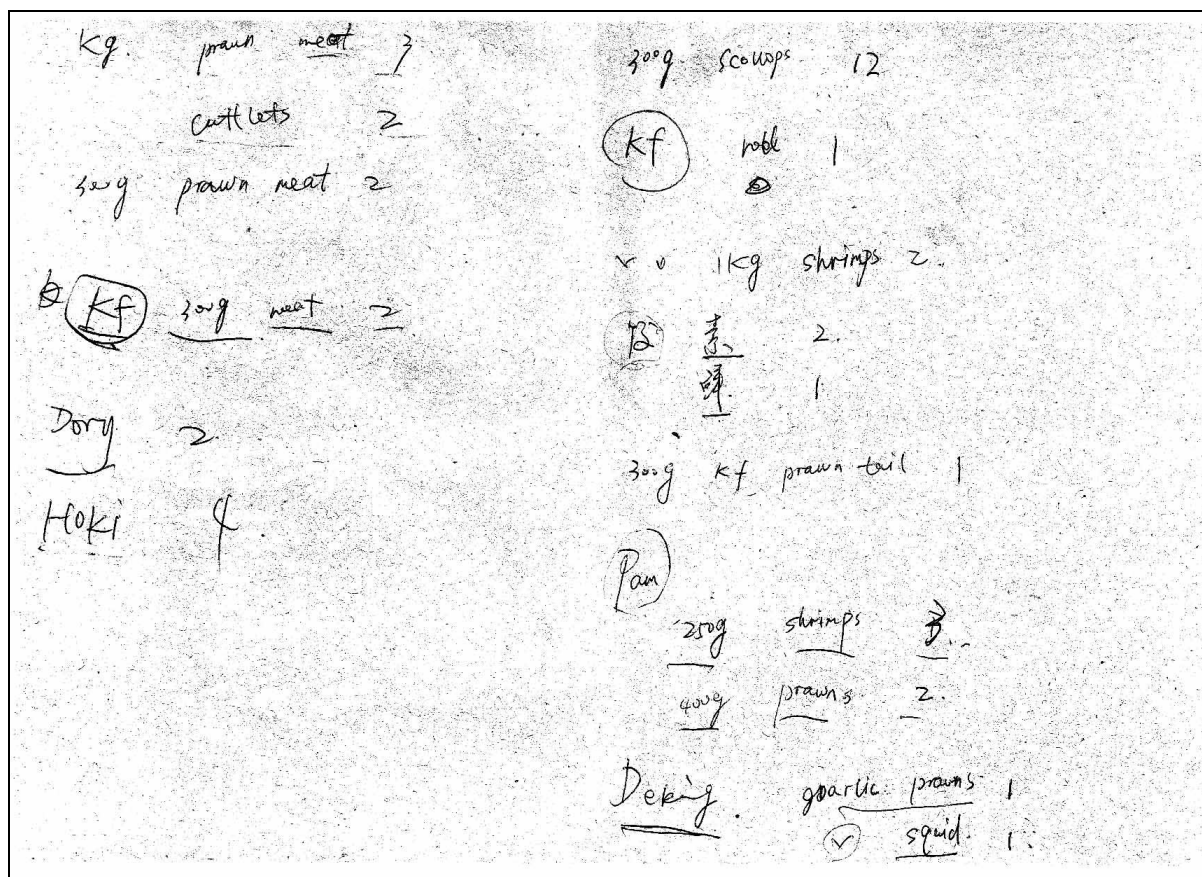 Kg. prawn meat 3
cuttlets 2
300g prawn meat 2
Kf 300g meat 2
Dory 2
Hoki 4
300g scollops 12
Kf 1
1kg shrimps 2.
素 2.
1
300g kf prawn tail 1
Pam
250g shrimps 3
400g prawns 2.
Deking. garlic prawns 1
squid. 1.